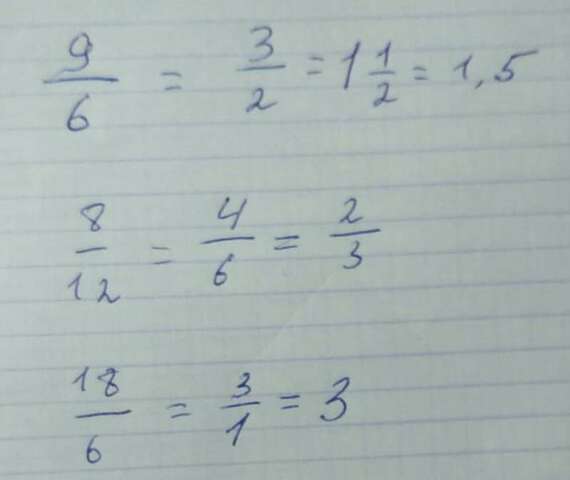 9/6 = 3/2 = 1 1/2 = 1,5
8/12 = 4/6 = 2/3
18/6 = 3/1 = 3